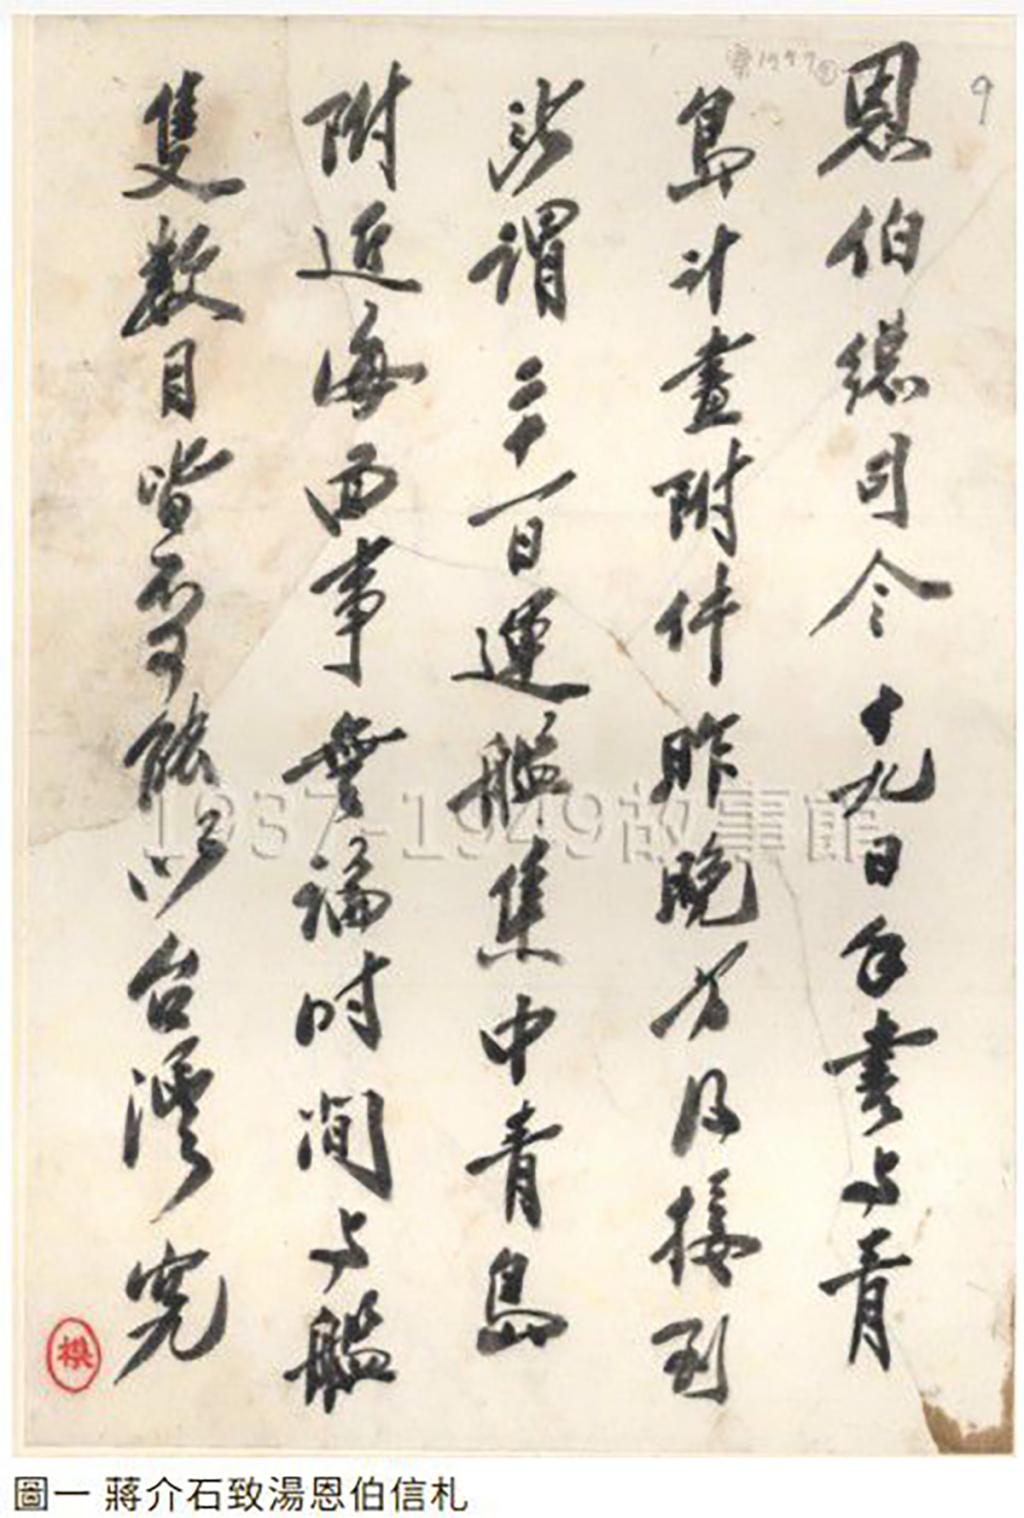 恩伯總司令十九日手書与青
島計畫附件昨晚方得接到
所謂二十一日運艦集中青島
附近海面事無論時間与艦
隻數目皆不可能以台灣究
圖一 蔣介石致湯恩伯信札
1937-1949故事館
9